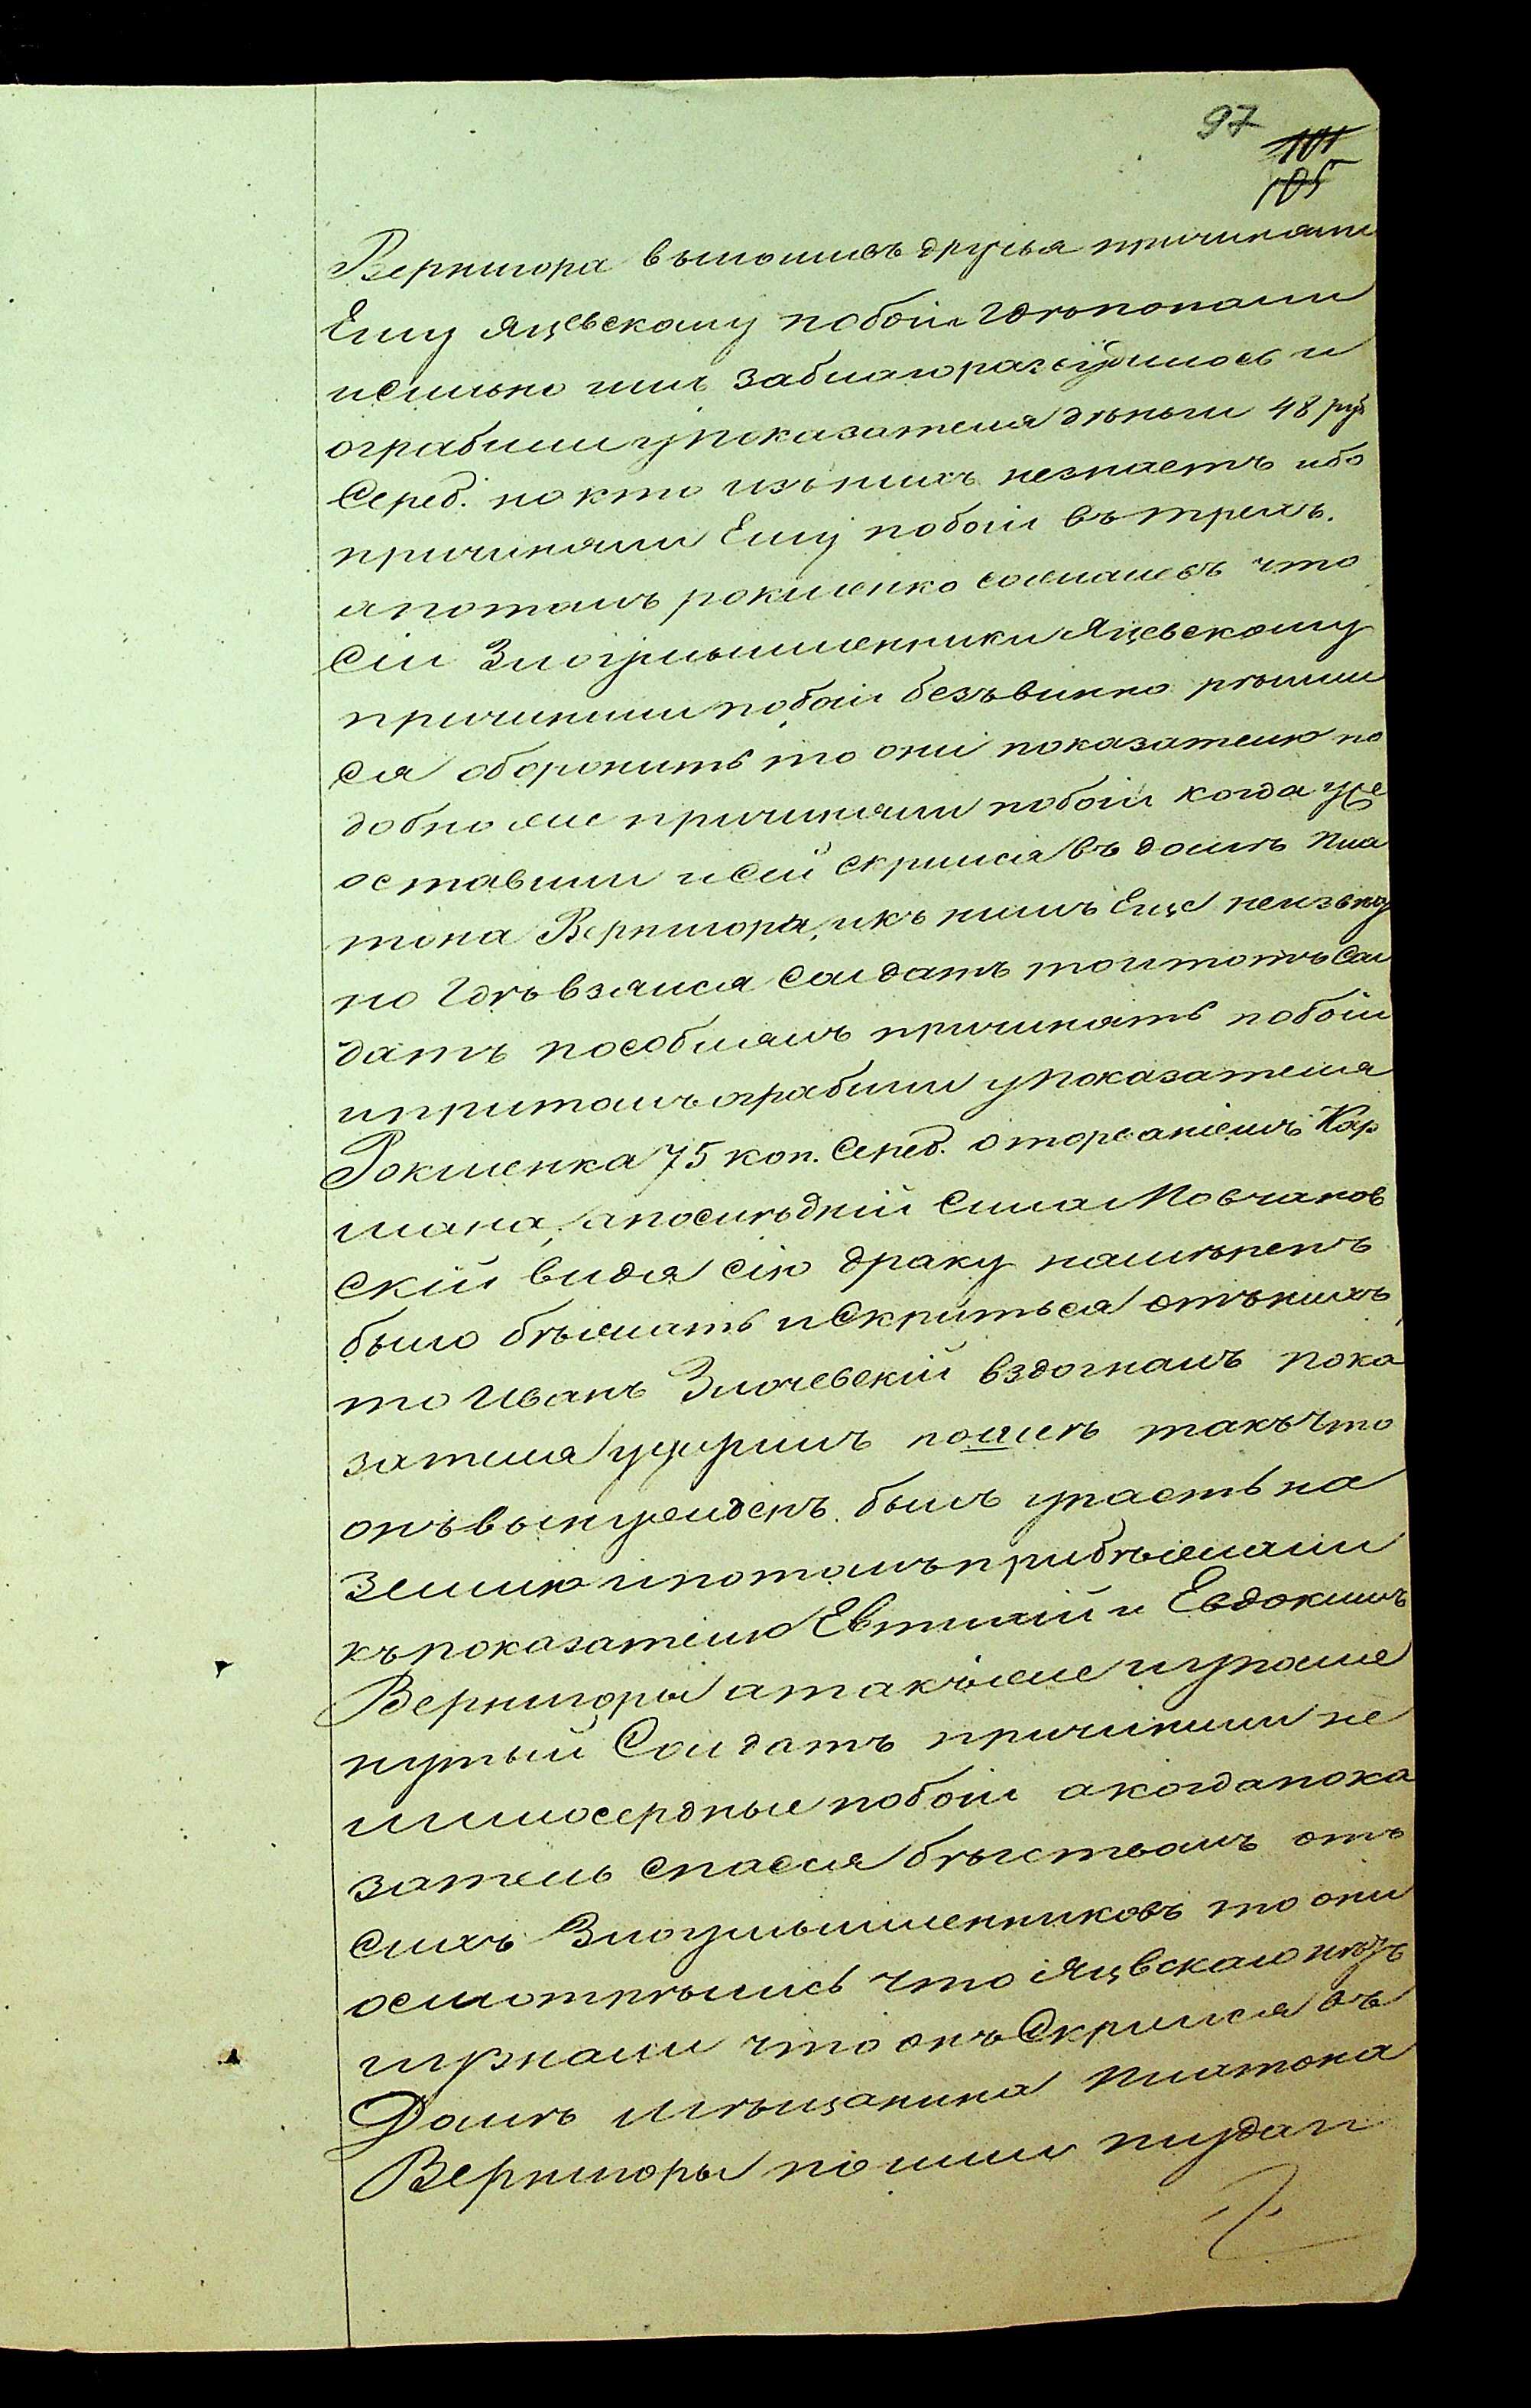 97
101
105
Вернигора выломивъ друья причиняли
Ему Яцевскому побои гдѣ попали
исколько имъ заблагоразсудилось и
ограбили у показателя дѣньги 48 руб
Сереб. но кто изъ нихъ незнаетъ ибо
причиняли Ему побои въ трехъ.
апотомъ рокиленко сославъ что
Сіи Злоумышленники Яцевскому
причинили побои безъвинно рѣшил
ся оборонить то они показателю по
добно же причиняли побои когда уже
оставили исей скрился въ домъ Пла
тона Вернигора, икъ нимъ Еще неизвѣ
но гдѣ взялся Солдатъ то и тотъ Сол
датъ пособлялъ причинять побои
ипритомъ ограбили упоказателя
Рокиленка 75 коп. Сереб. оторваніемъ Кар
мана, апослѣдній Сила Мовчанов
скій видя сію драку намѣренъ
было бѣжать и Скриться отънихъ
то Иванъ Злочевскій вздогналъ пока
зателя ударилъ такъ что
онъ вынужденъ былъ упасть на
Землю ипотомъ прибѣжали
къ показателю Евтихій и Евдокимъ
Вернигоры атакъже иупомя
нутый Солдатъ причинили не
милосердные побои акогда пока
затель спасся бѣгствомъ отъ
Сихъ Злоумышленниковъ то они
осмотрѣлись что Яцевскаго нѣтъ
иузнали что онъ Скрился въ
Домъ мѣщанина Платона
Вернигоры пошли туда и